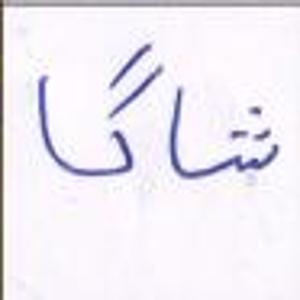 شاگا